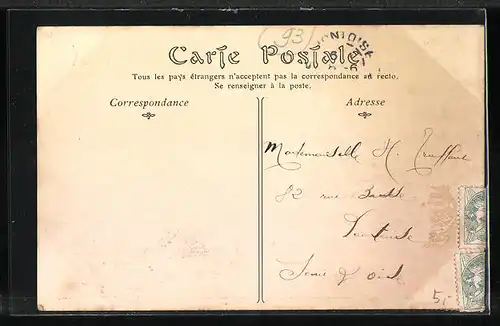 (93)
PONTOISE
Carte Postale
Tous les pays étrangers n'acceptent pas la correspondance au recto.
Se renseigner à la poste.
Correspondance
Adresse
Mademoiselle H. Truffaut
82 rue
Pontoise
Seine & Oise
5,-